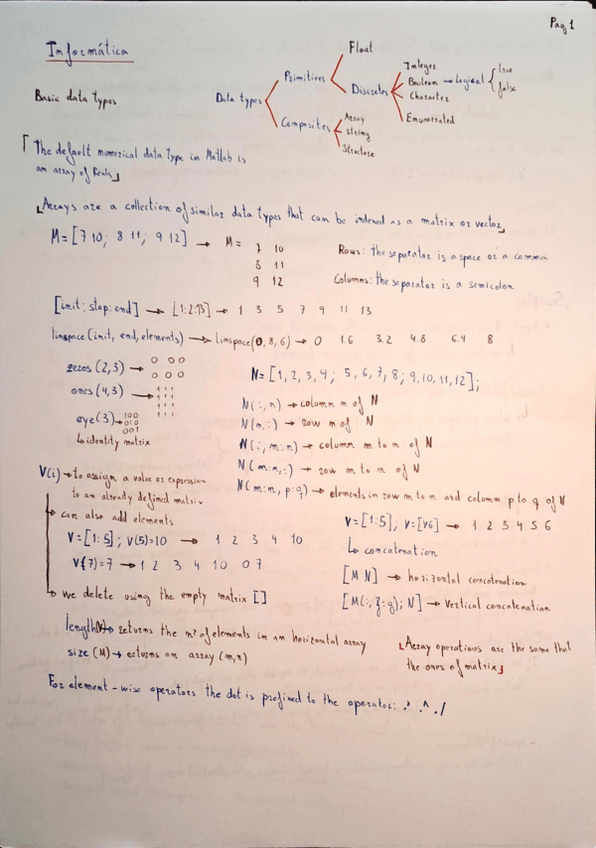 Pag 1
Informática
Basic data types
Data types
Primitives
Float
Discretes
Integer
Boolean → Logical { true
false
Character
Enumerated
Composites
Array
string
Structure
The default numerical data type in Matlab is
an array of Reals
Arrays are a collection of similar data types that can be indexed as a matrix or vector
M = [7 10; 8 11; 9 12] → M = 7 10
8 11
9 12
Rows: the separator is a space or a comma
Columns: the separator is a semicolon
[init: step: end] → [1:2:13] → 1 3 5 7 9 11 13
linspace(init, end, elements) → linspace(0, 8, 6) → 0 1.6 3.2 4.8 6.4 8
zeros (2,3) → 0 0 0
0 0 0
ones (4,3) → 1 1 1
1 1 1
1 1 1
1 1 1
eye(3) → 1 0 0
0 1 0
0 0 1
↳ identity matrix
N = [1, 2, 3, 4; 5, 6, 7, 8; 9, 10, 11, 12];
N(:, n) → column n of N
N(n, :) → row n of N
N(:, m:n) → column m to n of N
N(m:n, :) → row m to n of N
N(m:n, p:q) → elements in row m to n and column p to q of N
V(i) → to assign a value or expression
to an already defined matrix
→ can also add elements
V = [1:5]; V(5)=10 → 1 2 3 4 10
V(7)=7 → 1 2 3 4 10 0 7
→ we delete using the empty matrix []
V = [1:5]; V=[V6] → 1 2 3 4 5 6
↳ concatenation
[M N] → horizontal concatenation
[M(:, ); N] → vertical concatenation
length → returns the nº of elements in an horizontal array
size (M) → returns an array (m,n)
Array operations are the same that
the ones of matrix
For element-wise operators the dot is prefixed to the operator: .* .^ ./